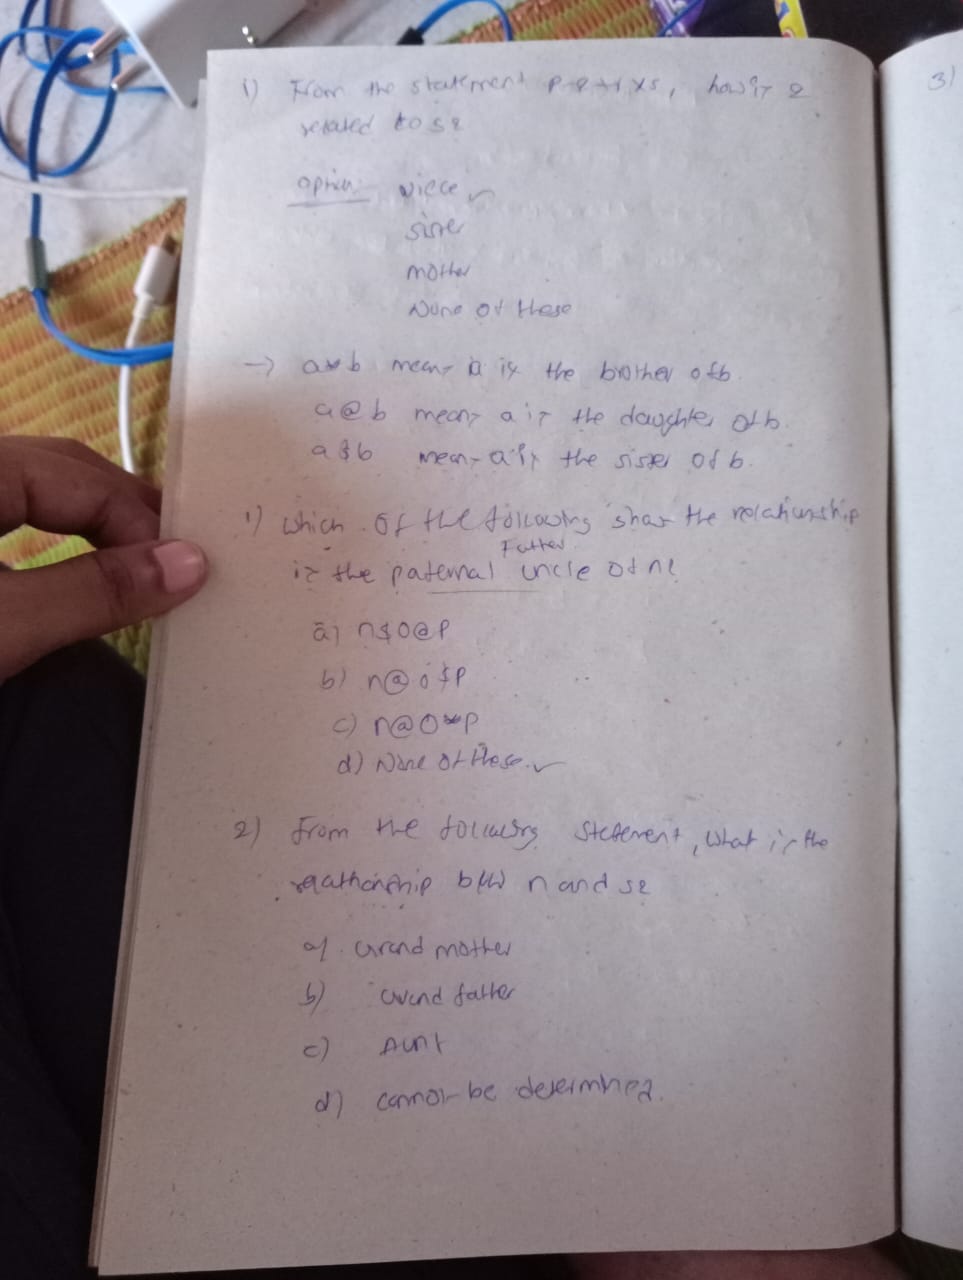 1) From the statement P-2+rxs, how is 2
related to s?
3)
option: niece ✓
sister
mother
None of these
→ a*b means a is the brother of b.
a@b means a is the daughter of b.
a$b means a is the sister of b.
1) which of the following shows the relationship
Father
is the paternal uncle of n?
a) n$o@p
b) n@o$p
c) n@o*p
d) None of these. ✓
2) From the following statement, what is the
relationship b/w n and s?
a) Grand mother
b) Grand father
c) Aunt
d) cannot be determined.